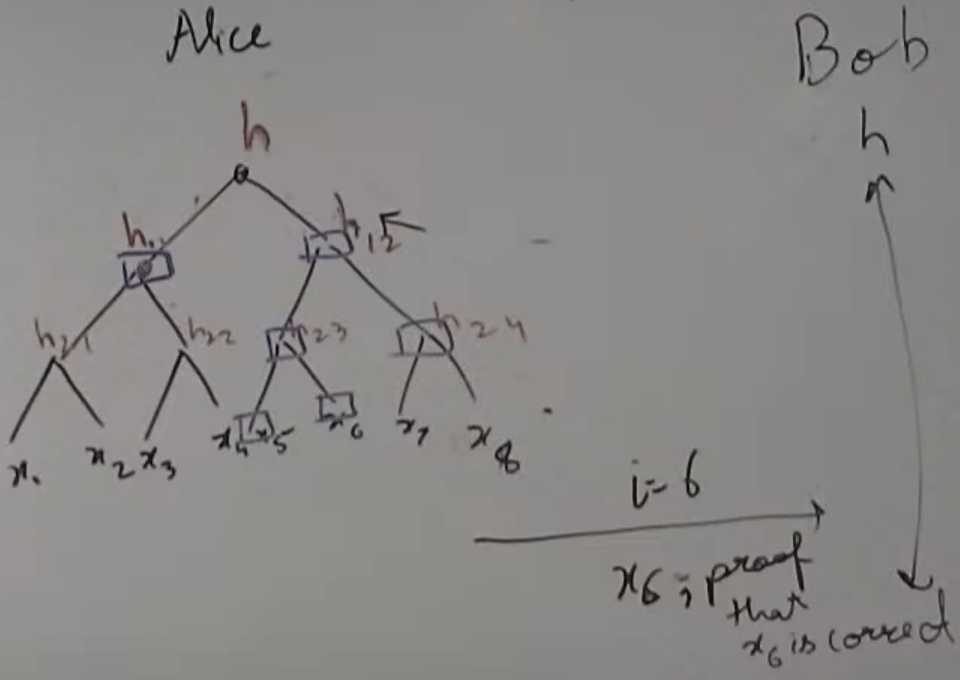 Alice
Bob
h
h
h₁₂
h₂₁
h₂₂
h₂₄
x₁ x₂ x₃ x₄ x₅ x₆ x₇ x₈
i=6
x6 ; proof
that
x₆ is correct